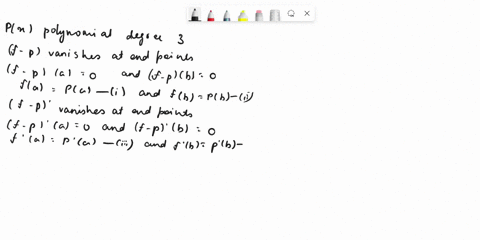 P(x) polynomial degree 3
(f-p) vanishes at end points
(f-p)(a) = 0 and (f-p)(b) = 0
f(a) = P(a) —(i) and f(b) = P(b) —(ii)
(f-p)' vanishes at end points
(f-p)'(a) = 0 and (f-p)'(b) = 0
f'(a) = P'(a) —(iii) and f'(b) = P'(b) —